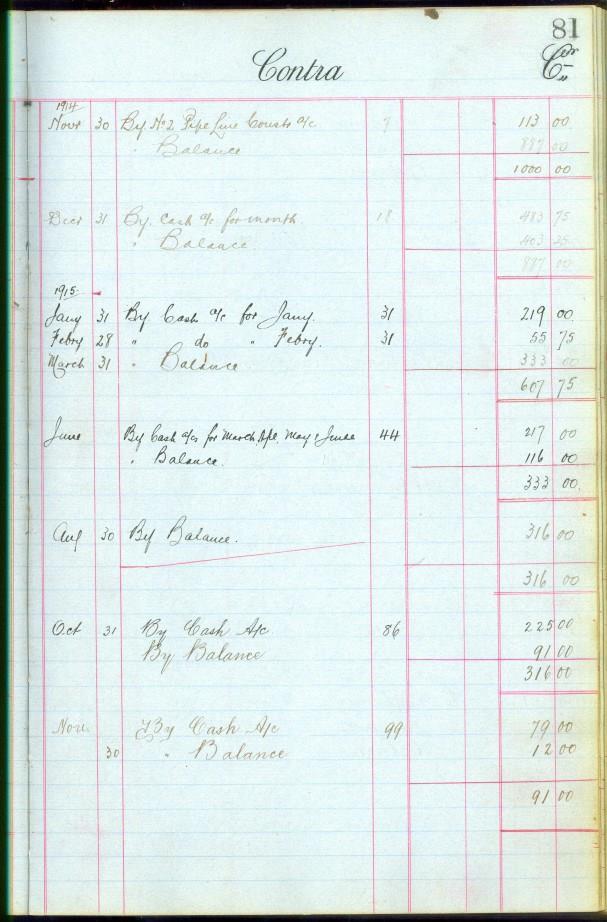 81
Contra
Cr
1914
Novr 30 By No 2 Pipe Line Constr a/c 9 113 00
" Balance 887 00
1000 00
Decr 31 By Cash a/c for month 18 483 75
" Balance 403 25
887 00
1915
Jany 31 By Cash a/c for Jany. 31 219 00
Febry 28 " do " Febry. 31 55 75
March 31 " Balance 333 00
607 75
June By Cash a/cs for March, Apl, May & June 44 217 00
" Balance. 116 00
333 00
Aug 30 By Balance. 316 00
316 00
Oct 31 By Cash A/c 86 225 00
By Balance 91 00
316 00
Nov. By Cash A/c 99 79 00
30 " Balance 12 00
91 00